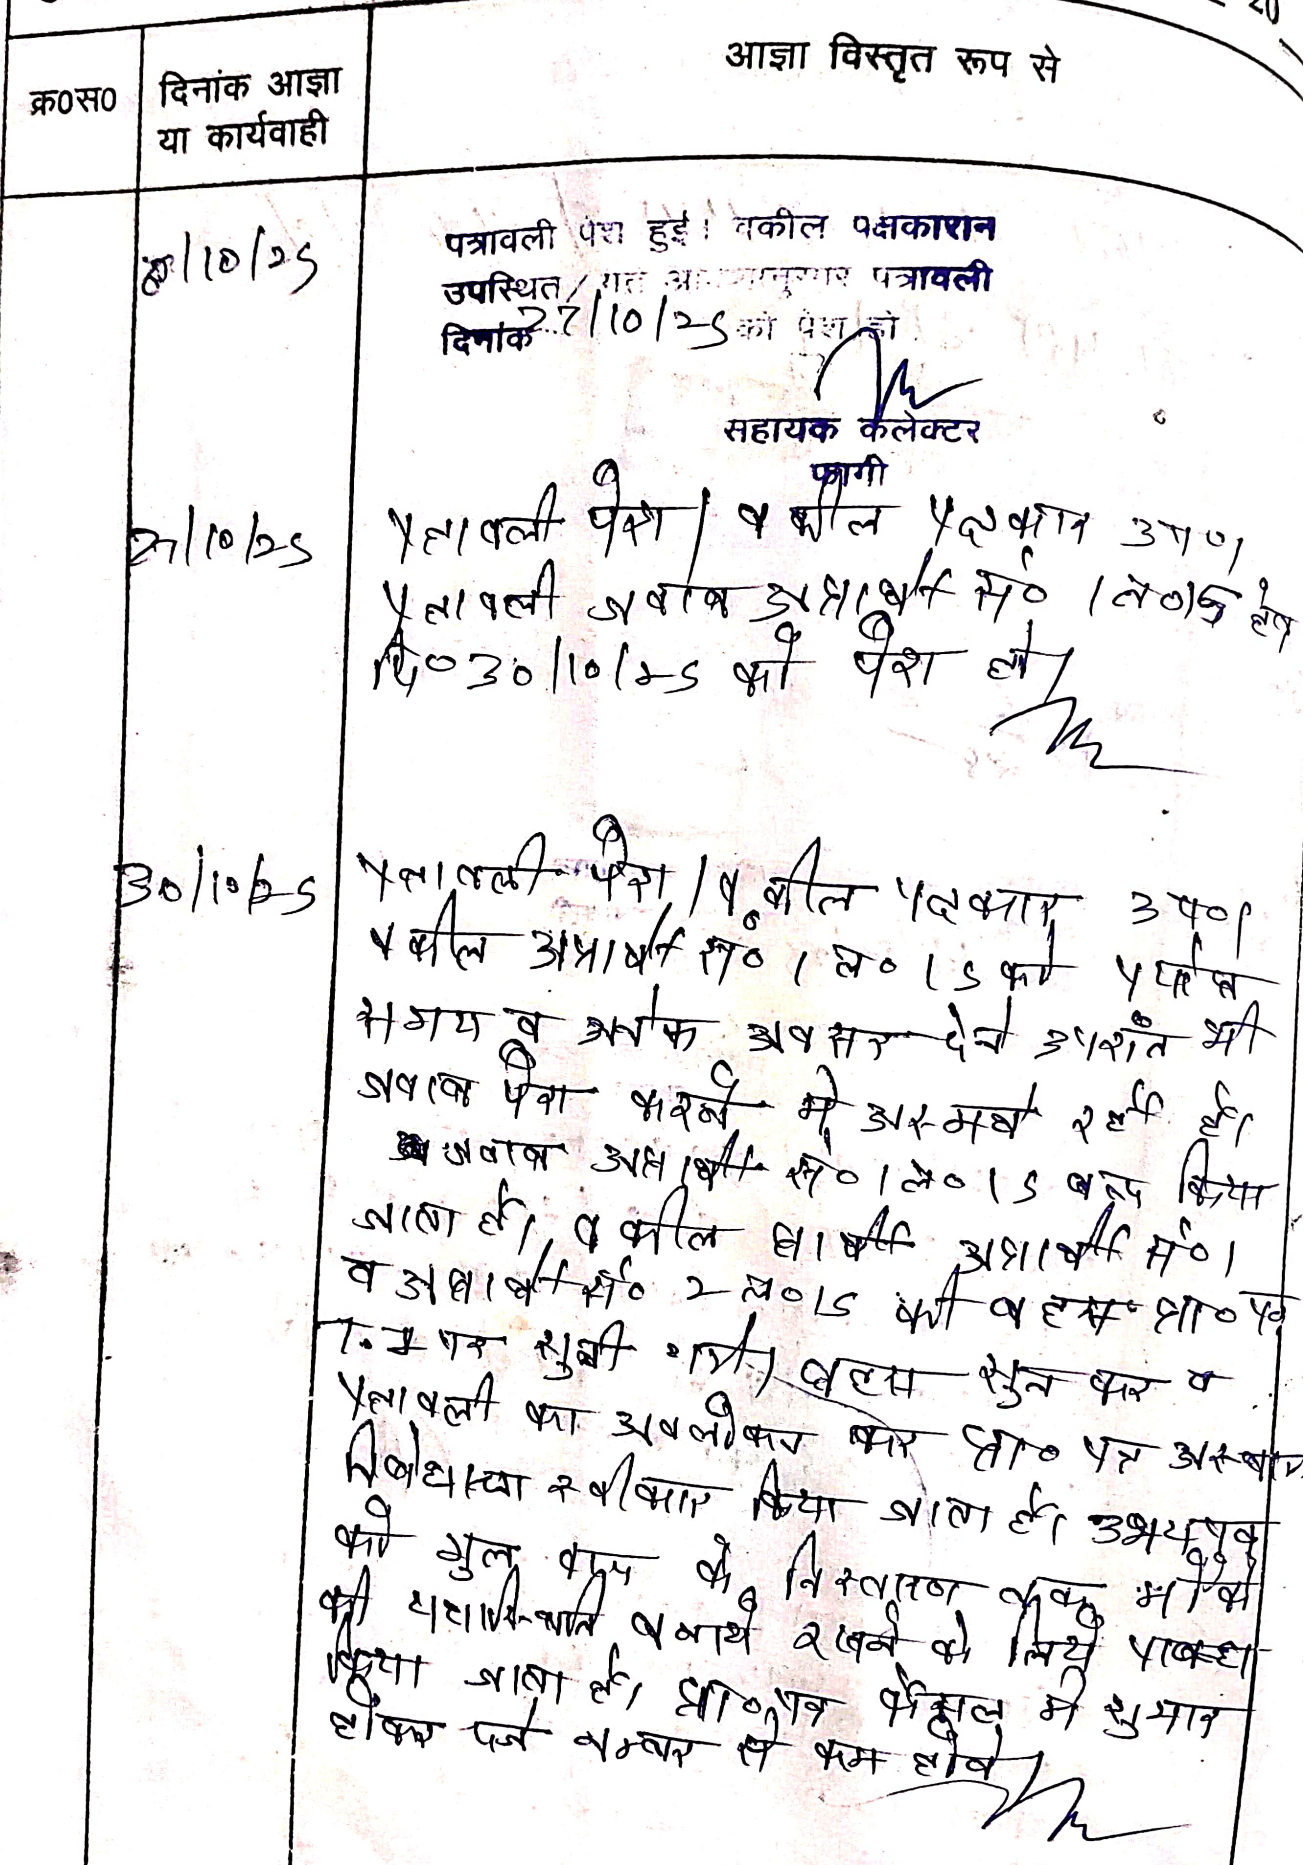 20
क्र०स०
दिनांक आज्ञा
या कार्यवाही
आज्ञा विस्तृत रूप से
/10/25
पत्रावली पेश हुई। वकील पक्षकारान
उपस्थित/ गत आज्ञानुसार पत्रावली
दिनांक 27/10/25 को पेश हो
सहायक कलेक्टर
फागी
27/10/25
पत्रावली पेश। वकील पक्षकार उप०।
पत्रावली जवाब अप्रार्थी सं० 1 ल० 15 हेतु
दि० 30/10/25 को पेश हो।
30/10/25
पत्रावली पेश। वकील पक्षकार उप०।
वकील अप्रार्थी सं० 1 ल० 15 को पर्याप्त
समय व अनेक अवसर देने उपरांत भी
जवाब पेश करने में असमर्थ रहे है।
जवाब अप्रार्थी सं० 1 ल० 15 बन्द किया
जाता है। वकील प्रार्थी अप्रार्थी सं० 1
व अप्रार्थी सं० 2 ल० 15 की बहस प्रा० पत्र
पर सुनी गयी। बहस सुन कर व
पत्रावली का अवलोकन कर प्रा० पत्र अस्थाई
निषेधाज्ञा स्वीकार किया जाता है। उभयपक्ष
को मुल वाद के निस्तारण तक मौके
की यथास्थिति बनाये रखने के लिये पाबन्द
किया जाता है। प्रा० पत्र फैसल में शुमार
होकर दर्ज नम्बर से कम होवे।